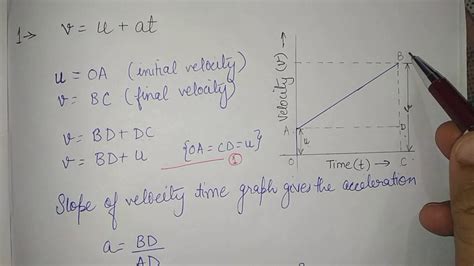 1→ v = u + at
u = OA (initial velocity)
v = BC (final velocity)
v = BD + DC
v = BD + u {OA = CD = u}
①
Slope of velocity time graph gives the acceleration
a = BD
AD
Velocity (v) →
B
A
u
D
v
O
Time (t) →
C